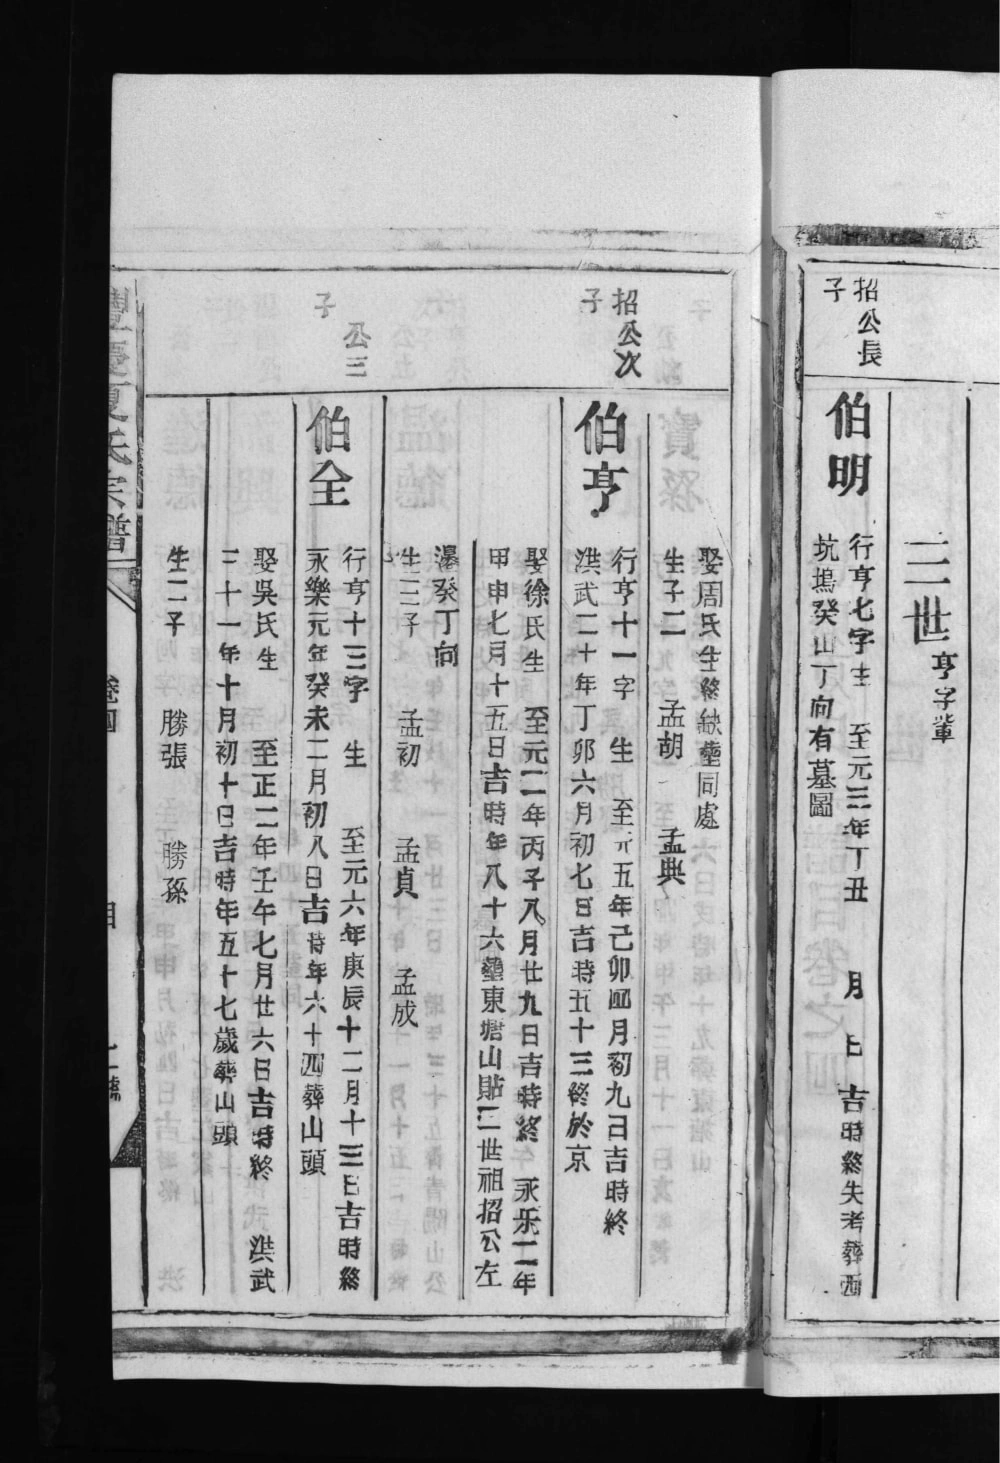 三世亨字輩
招公長
子
伯明
行亨七字生 至元三年丁丑 月 日 吉時終失考葬西
坑塢癸山丁向有墓圖
娶周氏生終缺塟同處
生子二 孟胡 孟典
招公次
子
伯亨
行亨十一字 生 至元五年己卯四月初九日吉時終
洪武二十年丁卯六月初七日吉時五十三終於京
娶徐氏生 至元二年丙子八月廿九日吉時終 永乐二年
甲申七月十五日吉時年八十六塟東塘山貼二世祖招公左
癸丁向
生三子 孟初 孟貞 孟成
公三
子
伯全
行亨十三字 生 至元六年庚辰十二月十三日吉時終
永樂元年癸未二月初八日吉時年六十四葬山頭
娶吳氏生 至正二年壬午七月廿六日吉時終 洪武
三十一年十月初十日吉時年五十七歲葬山頭
生二子 勝張 勝孫
豐慶夏氏宗譜
卷四